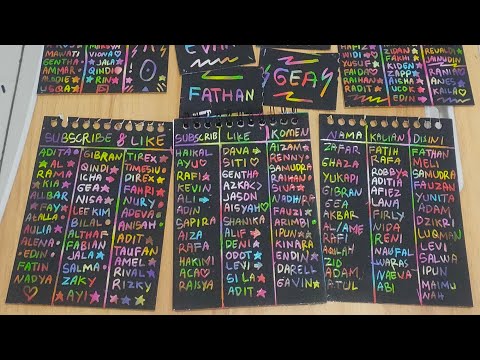 MAWATI
GENTHA
AMMAR
ALODIE
USQAY
VIONA♡
JALA
QINDI
RIN
EVIN
FATHAN
GEA
HAFIZ
WIDI
YUSUF
FAIDA
RAIHAN
RADIT
ZIDAN
FAKHRI
KIDEN
ZAPP
AISHA
UCOK
EDIN
REVALDI
JAMUDIN
RANIA
ANES
KAILA♡
SUBSCRIBE & LIKE
ADITA
AL
RAMA
KIA
ALIBAR
FAYE
ATALLA
AULIA
ALENA
EDIN
FATIN
NADYA
GIBRAN
QINDI
ICHA
GEA
NISA
LEE KIM
BILAL
ALTHAF
FABIAN
JALA
SALMA
ZAKY
AYI
TIREX
TIMESIU
DIREX
FAHRI
NURY
ADEVA
ANISAH
ADIT
TAUFAN
AMEL
RIVAL
RIZKY
SUBSCRIB
HAIKAL
AYU♡
RAFI
KEVIN
ALI
ADIN
SAPIRA
AIZA
RAFA
HAKIMI
ACA♡
RAISYA
LIKE
DAVA
SITI
GENTHA
AZKA
JASON
AISYAH
SHANIKA
ALIF
DENI
ODOT
LEVI
SILA
ADIT
KOMEN
AIZAN
RENNY
SAMUDRA
RAISYA
SIVA
NADHIRA
FAUZI
ARIMBI
IPUN
KINARA
ENDIN
DARELL
GAVIN
NAMA
ZAFAR
GHAZA
YUKADI
GIBRAN
GEA
AKBAR
AL/AME
RAFI
AQILAH
ZIO
ADAM
ATUL
KALIAN
FATIH
RAFA
ROBBY
ADITIA
AFIZ
LANA
FIRLY
NIDA
RENI
NAUFAL
WARAS
NAEVA
ABI
DISINI
FATHAN
MELI
SAMUDRA
RAUZAN
YUNITA
ADIK
DAM
DZIKRI
LUQMAN
LEVI
SALWA
IPUN
MAIMU
NAH